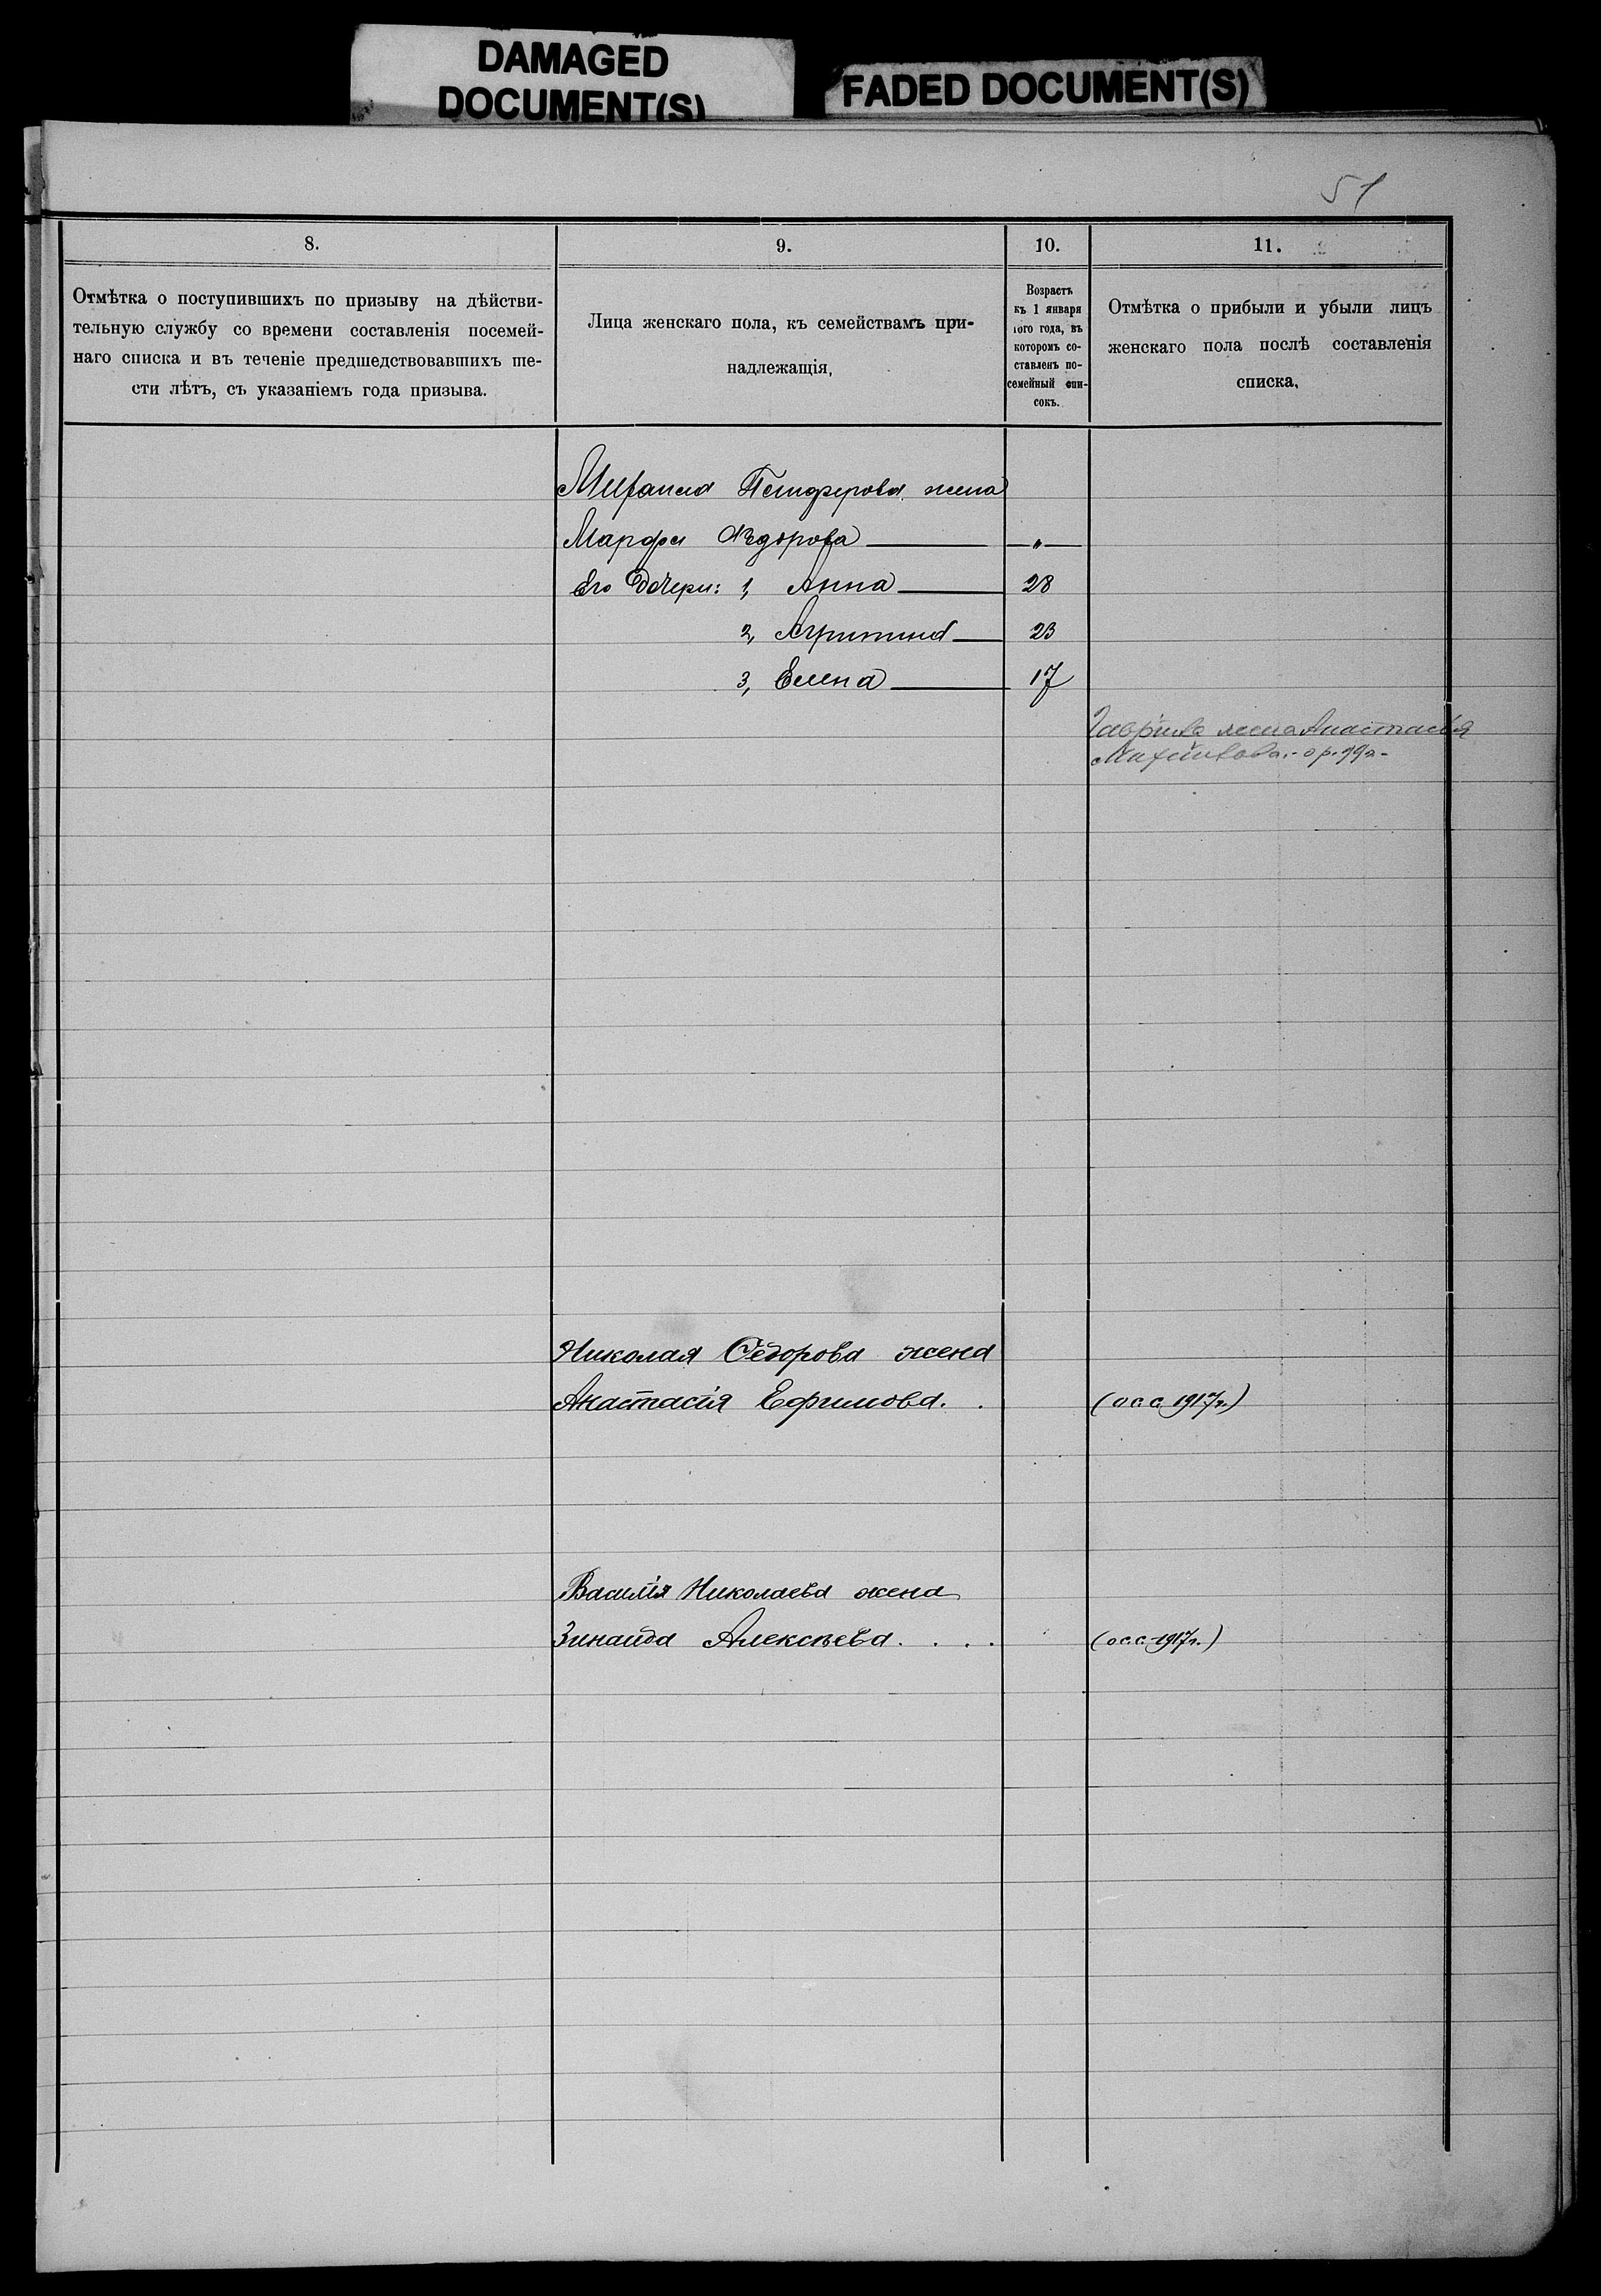 DAMAGED
DOCUMENT(S)
FADED DOCUMENT(S)
51
8.
9.
10.
11.
Отмѣтка о поступившихъ по призыву на дѣйстви-
тельную службу со времени составленія посемей-
наго списка и въ теченіе предшедствовавшихъ ше-
сти лѣтъ, съ указаніемъ года призыва.
Лица женскаго пола, къ семействамъ при-
надлежащія,
Возрастъ
къ 1 января
того года, въ
которомъ со-
ставленъ по-
семейный спи-
сокъ.
Отмѣтка о прибыли и убыли лицъ
женскаго пола послѣ составленія
списка.
жена
Марфа Ѳедорова — „ —
Его дочери: 1, Анна — 28
2, Агрипина — 23
3, Елена — 17
Гавріила жена Анастасія
Николая Ѳедорова жена
Анастасія Ефимова. . (о с.с. 1917г.)
Василія Николаева жена
Зинаида Алексѣева. . . . (о с.с. 1917г.)